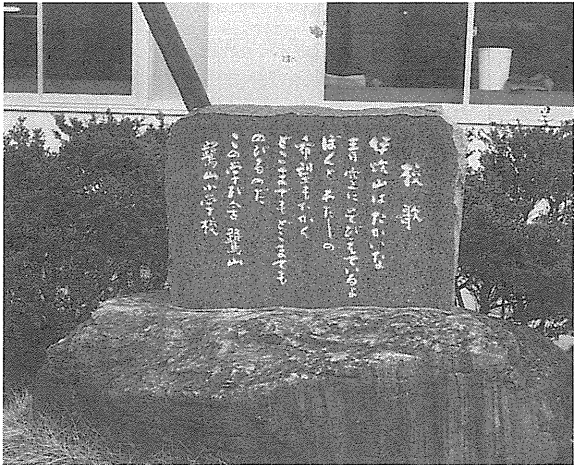 校歌
伊吹山はたかいな
青空にそびえているよ
ぼくとわたしの
希望もたかく
どこまでもどこまでも
のびるのだ
この学び舎 鷺山
鷺山小学校